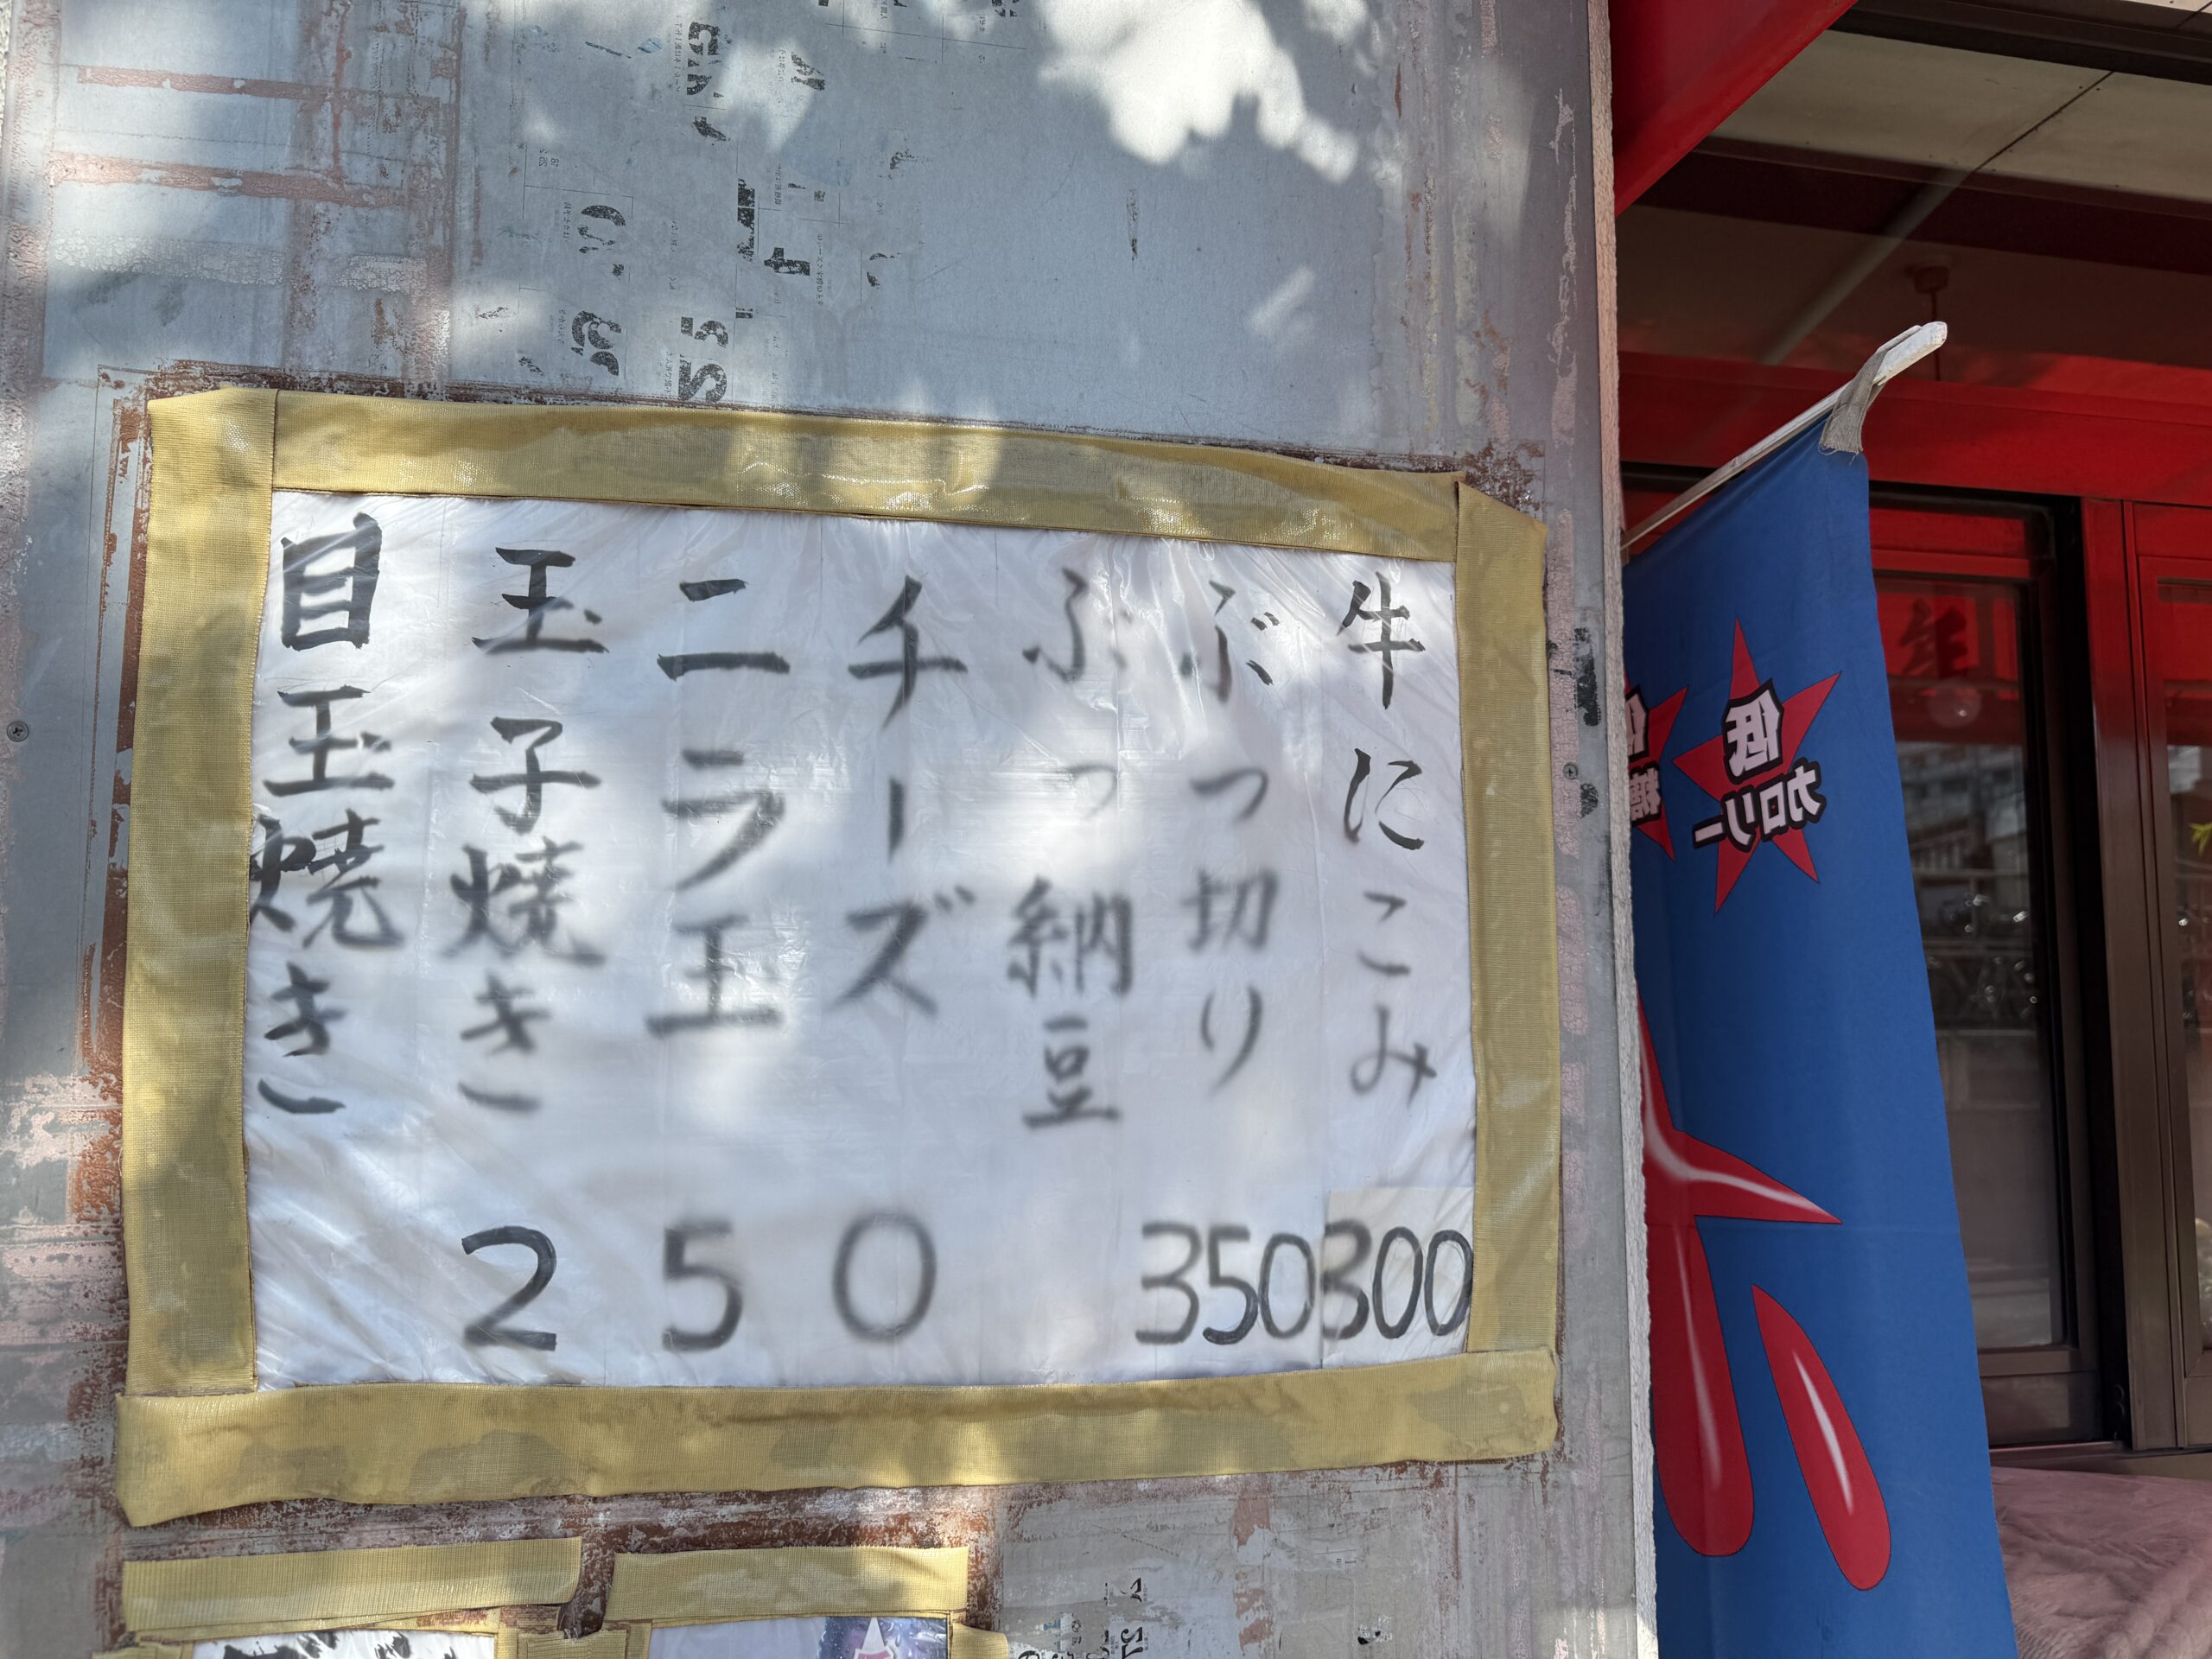 牛にこみ
300
ぶつ切り
350
ぶつ納豆
チーズ
ニラ玉
玉子焼き
目玉焼き
250
低
カロリー
低
糖